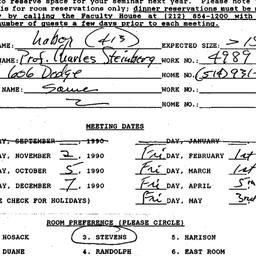 to reserve space for your seminar next year. Please note
is for room reservations only; dinner reservations must be
by calling the Faculty House at (212) 854-1200 with
number of guests a few days prior to each meeting.
Labor (413) EXPECTED SIZE: > 15
NAME: Prof. Charles Steinberg WORK NO. 4989
606 Dodge HOME NO. (514) 931-
NAME: Same WORK NO.
HOME NO.
MEETING DATES
DAY, SEPTEMBER 1990 DAY, JANUARY
DAY, NOVEMBER 2, 1990 Fri DAY, FEBRUARY 1st
DAY, OCTOBER 5, 1990 Fri DAY, MARCH 1st
DAY, DECEMBER 7, 1990 Fri DAY, APRIL 5th
E CHECK FOR HOLIDAYS) Fri DAY, MAY 3rd
ROOM PREFERENCE (PLEASE CIRCLE)
HOSACK 3. STEVENS 5. HARISON
DUANE 4. RANDOLPH 6. EAST ROOM